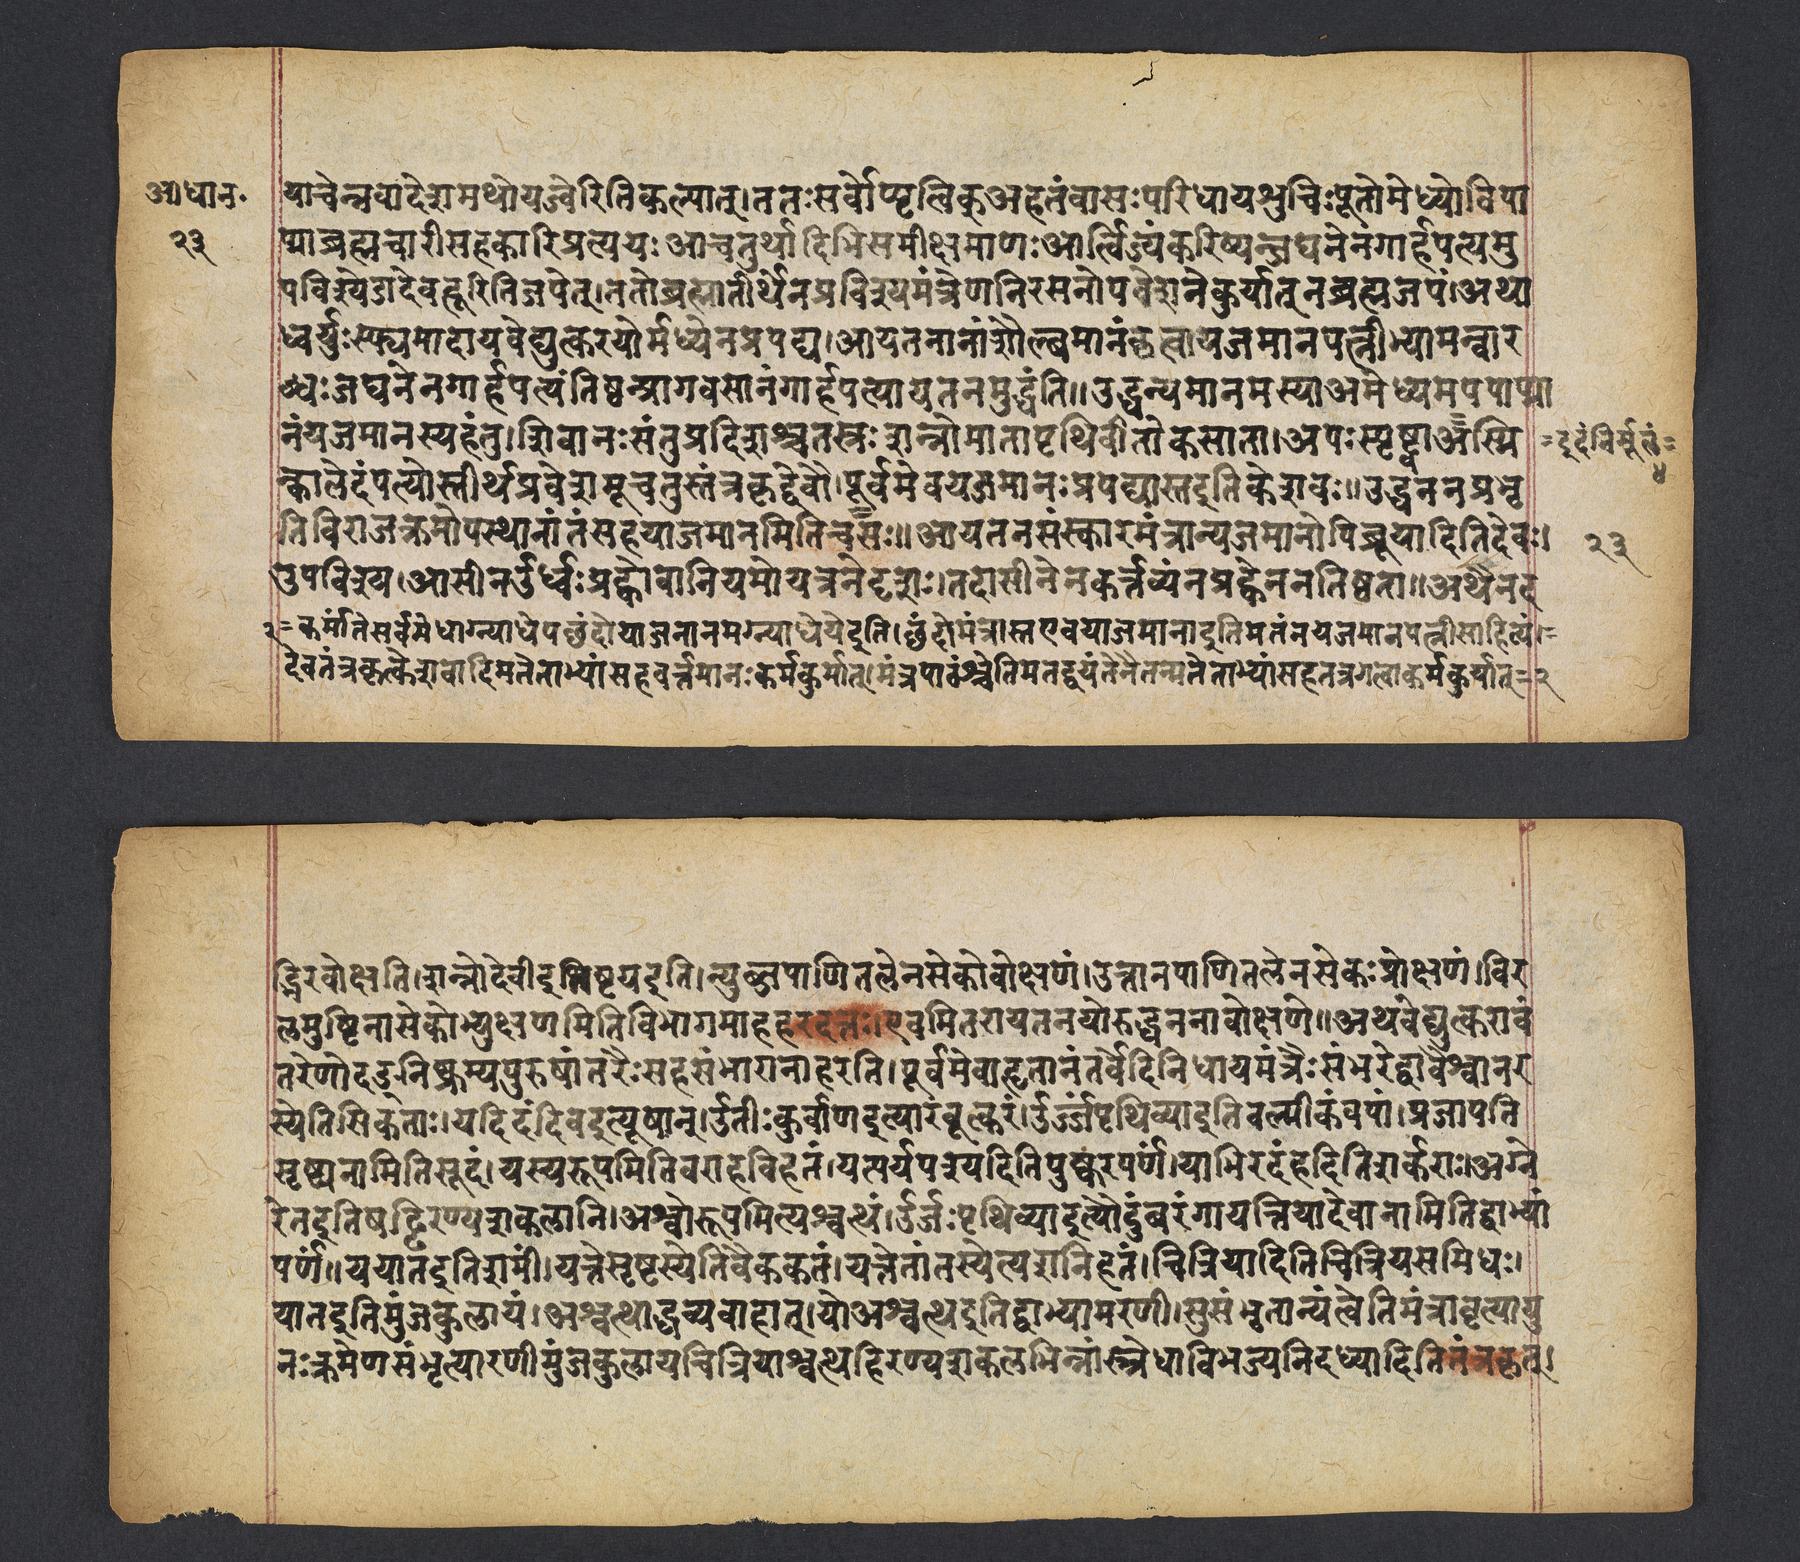 आधान॰
२३
याचेन्नवादेशमथोयज्वेरितिकल्पात्।ततःसर्वोप्यृत्विक्अहतंवासःपरिधायशुचिःपूतोमेध्योविपा
प्माब्रह्मचारीसहकारिप्रत्ययः आचतुर्थादिभिसमीक्षमाणःआर्त्विज्यंकरिष्यन्जघनेनंगार्हपत्यमु
पविश्येडादेवहूरितिजपेत्।ततोब्रह्मातीर्थेनप्रविश्यमंत्रेणनिरसनोपवेशनेकुर्यात्नब्रह्मजपं।अथा
ध्वर्युःस्फ्यमादायवेद्युत्करयोर्मध्येनप्रपद्य।आयतनानांशौल्बमानंकृत्वायजमानपत्नीभ्यामन्वार
ब्धःजघनेनगार्हपत्यंतिष्ठन्प्रागवसानंगार्हपत्यायतनमुद्धंति॥उद्धन्यमानमस्याअमेध्यमपपाप्मा
नंयजमानस्यहंतु।शिवानःसंतुप्रदिशश्चतस्त्रःशन्नोमातापृथिवीतोकसाता।अपःस्पृष्ट्वाअस्मि
=इदंनिर्मूलं=
४
न्कालेदंपत्योस्तीर्थप्रवेशमूचतुस्तंत्रकृद्देवौ।पूर्वमेवयजमानःप्रपद्यास्तइतिकेशवः॥उद्धननप्रभृ
तिविराजक्रमोपस्थानांतंसहयाजमानमितिन्वसः॥आयतनसंस्कारमंत्रान्यजमानोपिब्रूयादितिदेवः।
२३
उपविश्य।आसीनर्उर्ध्वःप्रह्वोवानियमोयत्रनेदृशः।तदासीनेनकर्त्तव्यंनप्रह्वेननतिष्ठता॥अथैनद
२=कर्मांतेसर्वमेधाग्न्याधेपछंदोयाजनानमग्न्याधेयेइति।छंदोमंत्रास्तएवयाजमानाइतिमतंनयजमानपत्नीसाहित्यं।=
देवतंत्रकृत्केशवादिमतेताभ्यांसहवर्त्तमानःकर्मकुर्मात्।मंत्रपाठंश्चेतिमतद्वयंतेनैतन्मतेताभ्यांसहतत्रगत्वाकर्मकुर्यात्=२
द्भिरवोक्षति।शन्नोदेवीरभिष्टयइति।न्युब्जपाणितलेनसेकोवोक्षणं।उत्तानपाणितलेनसेकःप्रोक्षणं।विर
लमुष्टिनासेकोभ्युक्षणमितिविभागमाहहरदत्तः।एवमितरायतनयोरुद्धननावोक्षणे॥अथवेद्युत्करावं
तरेणोदङ्निष्क्रम्यपुरुषांतरैःसहसंभारानाहरति।पूर्वमेवाहृतानंतर्वेदिनिधायमंत्रैःसंभरेद्वावैश्वानर
स्येतिसिकताः।यदिदंदिवइत्यूषान्।र्उतीःकुर्वाणइत्याखूत्करं।र्उर्ज्जंपृथिव्याइतिवल्मीकंवपां।प्रजापति
सृष्टानामितिसूदं।यस्यरूपमितिवराहविहतं।यत्पर्यपश्यदितिपुष्करपर्णं।याभिरदंहेदितिशर्कराः।अग्ने
रेतइतिषट्हिरण्यशकलानि।अश्वोरूपमित्यश्वत्थं।र्उर्ज्जःपृथिव्याइत्यौदुंबरंगायत्रियादेवानामितिद्वाभ्यां
पर्णं।ययातंइतिशमीं।यत्तेसृष्टस्येतिवैकंकतं।यत्तेतांतस्येत्यशनिहतं।चित्रियादितिचित्रियसमिधः।
यातइतिमुंजकुलायं।अश्वत्थाद्धव्यवाहात्।योअश्वत्थइतिद्वाभ्यामरणी।सुसंभृतान्यंत्वेतिमंत्रावृत्यायु
नःक्रमेणसंभृत्यारणीमुंजकुलायचित्रियाश्वत्थहिरण्यशकलभिन्नांस्त्रेधाविभज्यनिदध्यादितितंत्रकृत्।